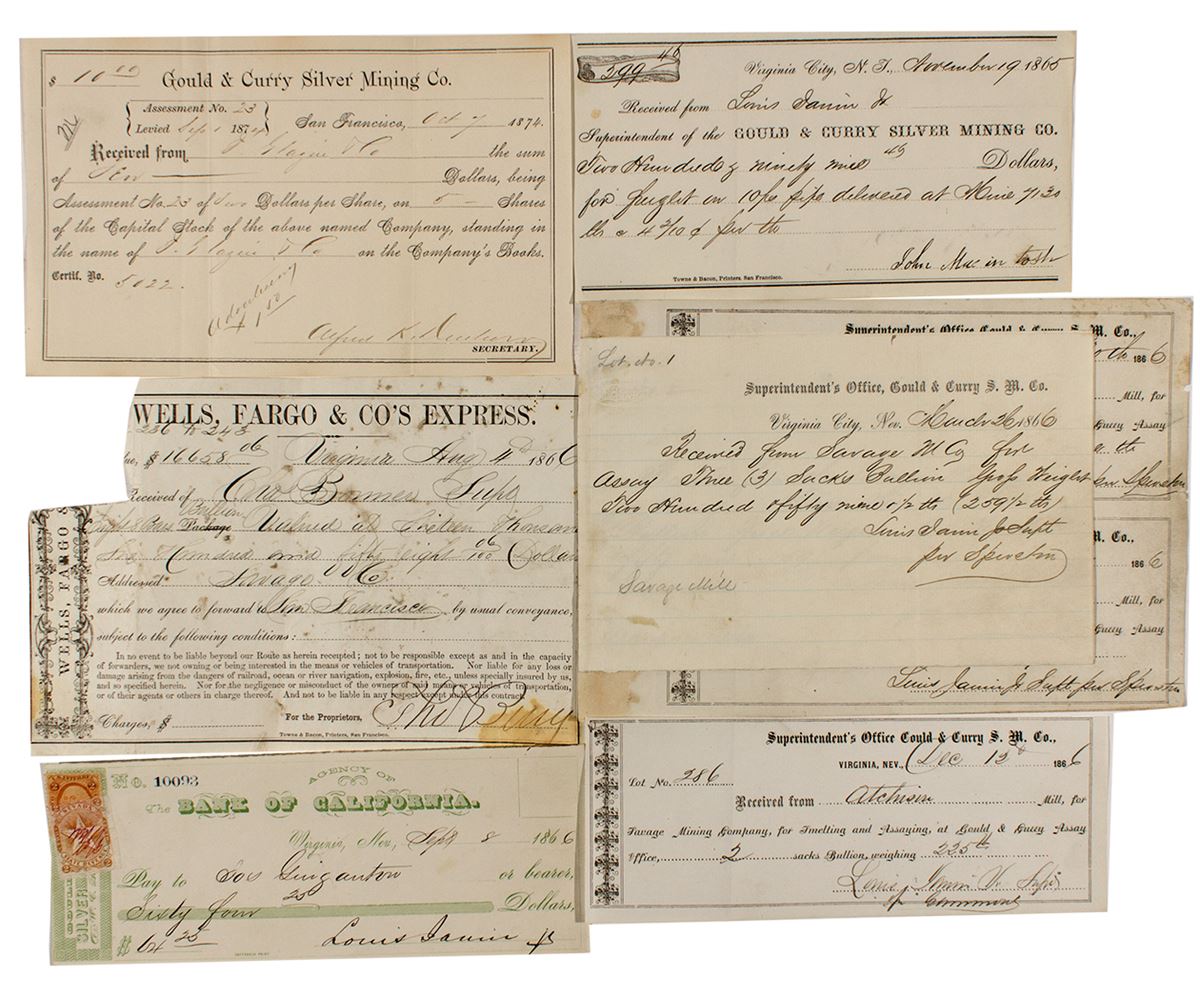 $ 10.00 Gould & Curry Silver Mining Co.
Assessment No. 23
Levied Sept 1 1874
San Francisco, Oct 7 1874.
Received from & Co the sum
of Ten Dollars, being
Assessment No. 23 of Two Dollars per Share, on 5 Shares
of the Capital Stock of the above named Company, standing in
the name of & Co on the Company's Books.
Certif. No. 5022.
Advertising
$1.50
Alfred K.
SECRETARY.
$299 46
Virginia City, N. T., November 19 1865
Received from Louis Janin Jr
Superintendent of the GOULD & CURRY SILVER MINING CO.
Two Hundred & ninety nine 46 Dollars,
for freight on 10 ps pipe delivered at Mine 7130
lbs @ 4 2/10 ¢ per lb
John Mac in tosh
Towne & Bacon, Printers, San Francisco.
WELLS, FARGO & CO'S EXPRESS.
236 to 243
$16658 06 Virginia Aug 4th 1866
Received of Supt
Bullion
Package Valued at Sixteen Thousand
Six Hundred and fifty eight 06/100 Dollars
Addressed Savage Co
which we agree to forward to San Francisco by usual conveyance,
subject to the following conditions:
In no event to be liable beyond our Route as herein receipted; not to be responsible except as and in the capacity
of forwarders, we not owning or being interested in the means or vehicles of transportation. Nor liable for any loss or
damage arising from the dangers of railroad, ocean or river navigation, explosion, fire, etc., unless specially insured by us,
and so specified herein. Nor for the negligence or misconduct of the owners of said means or vehicles of transportation,
or of their agents or others in charge thereof. And not to be liable in any respect except under this contract.
Charges, $
For the Proprietors,
Towne & Bacon, Printers, San Francisco.
WELLS, FARGO &
Superintendent's Office Gould & Curry S. M. Co.,
1866
Mill, for
Curry Assay
Lot. No. 1
Superintendent's Office, Gould & Curry S. M. Co.
Virginia City, Nev. March 26 1866
Received from Savage M Co for
Assay Three (3) Sacks Bullion Gross Weight
Two Hundred & fifty nine & 1/2 lbs (259 1/2 lbs)
Louis Janin Jr Supt
per Spierstn
Savage Mill
M. Co.,
1866
Mill, for
Curry Assay
Louis Janin Jr Supt per Spierstn
No. 10093
AGENCY OF
The BANK OF CALIFORNIA.
Virginia, Nev, Sept 8 1866
Pay to or bearer,
Sixty four 25 Dollars,
$ 64 25 Louis Janin Jr
SILVER
Superintendent's Office Gould & Curry S. M. Co.,
VIRGINIA, NEV., Dec 12th 1866
Lot No. 286
Received from Atchison Mill, for
Savage Mining Company, for Smelting and Assaying, at Gould & Curry Assay
Office, 2 sacks Bullion, weighing 225 lb
Louis Janin Jr Supt